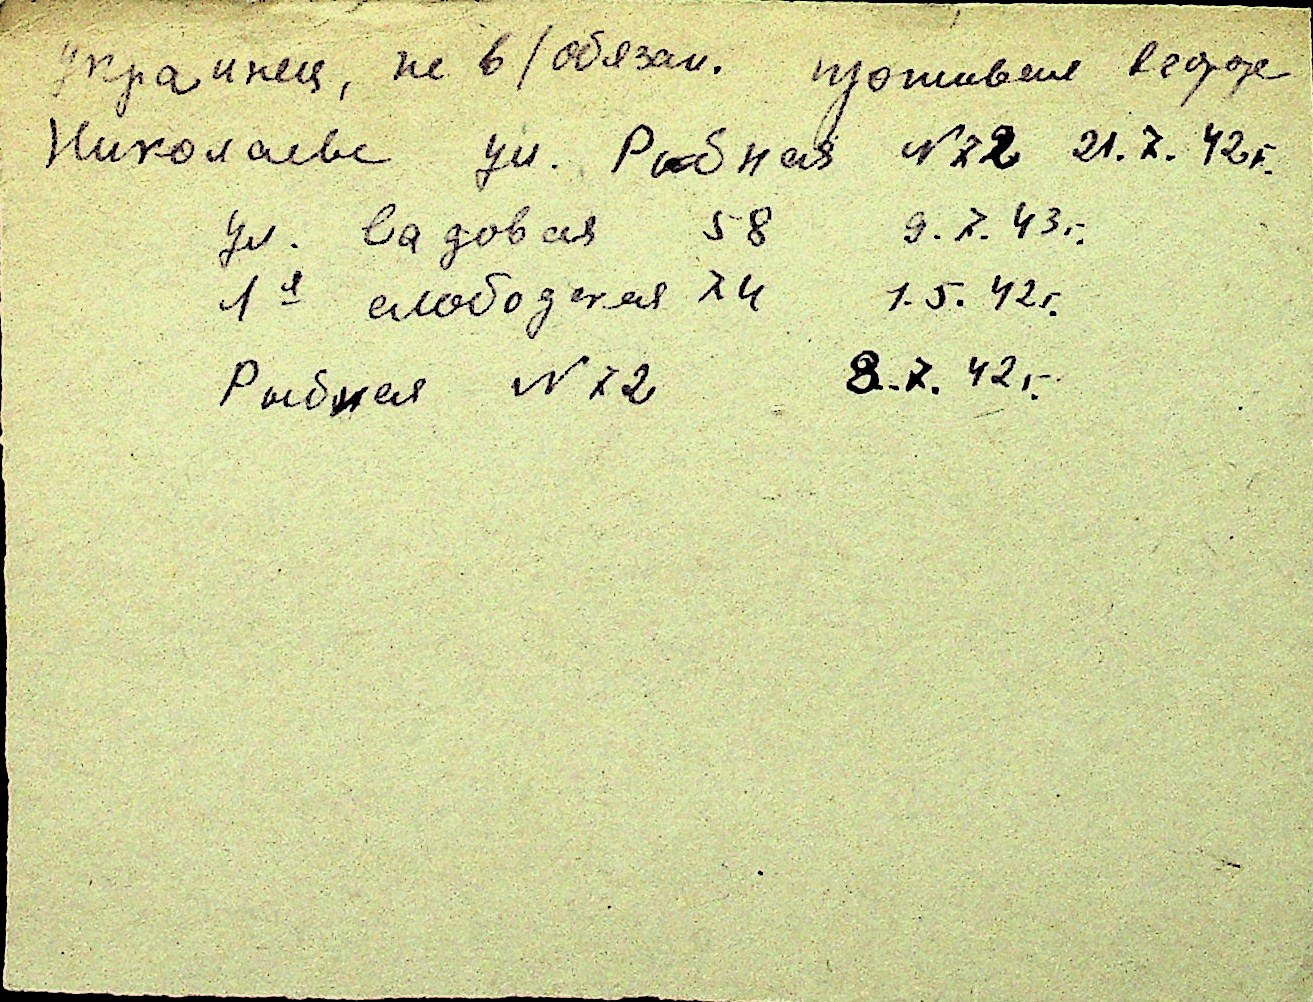 Украинец, не в/обязан. проживал в городе
Николаеве ул. Рыбная N 72 21.7.42г.
ул. Садовая 58 9.7.43г.
1я слободская 74 1.5.42г.
Рыбная N 72 8.7.42г.